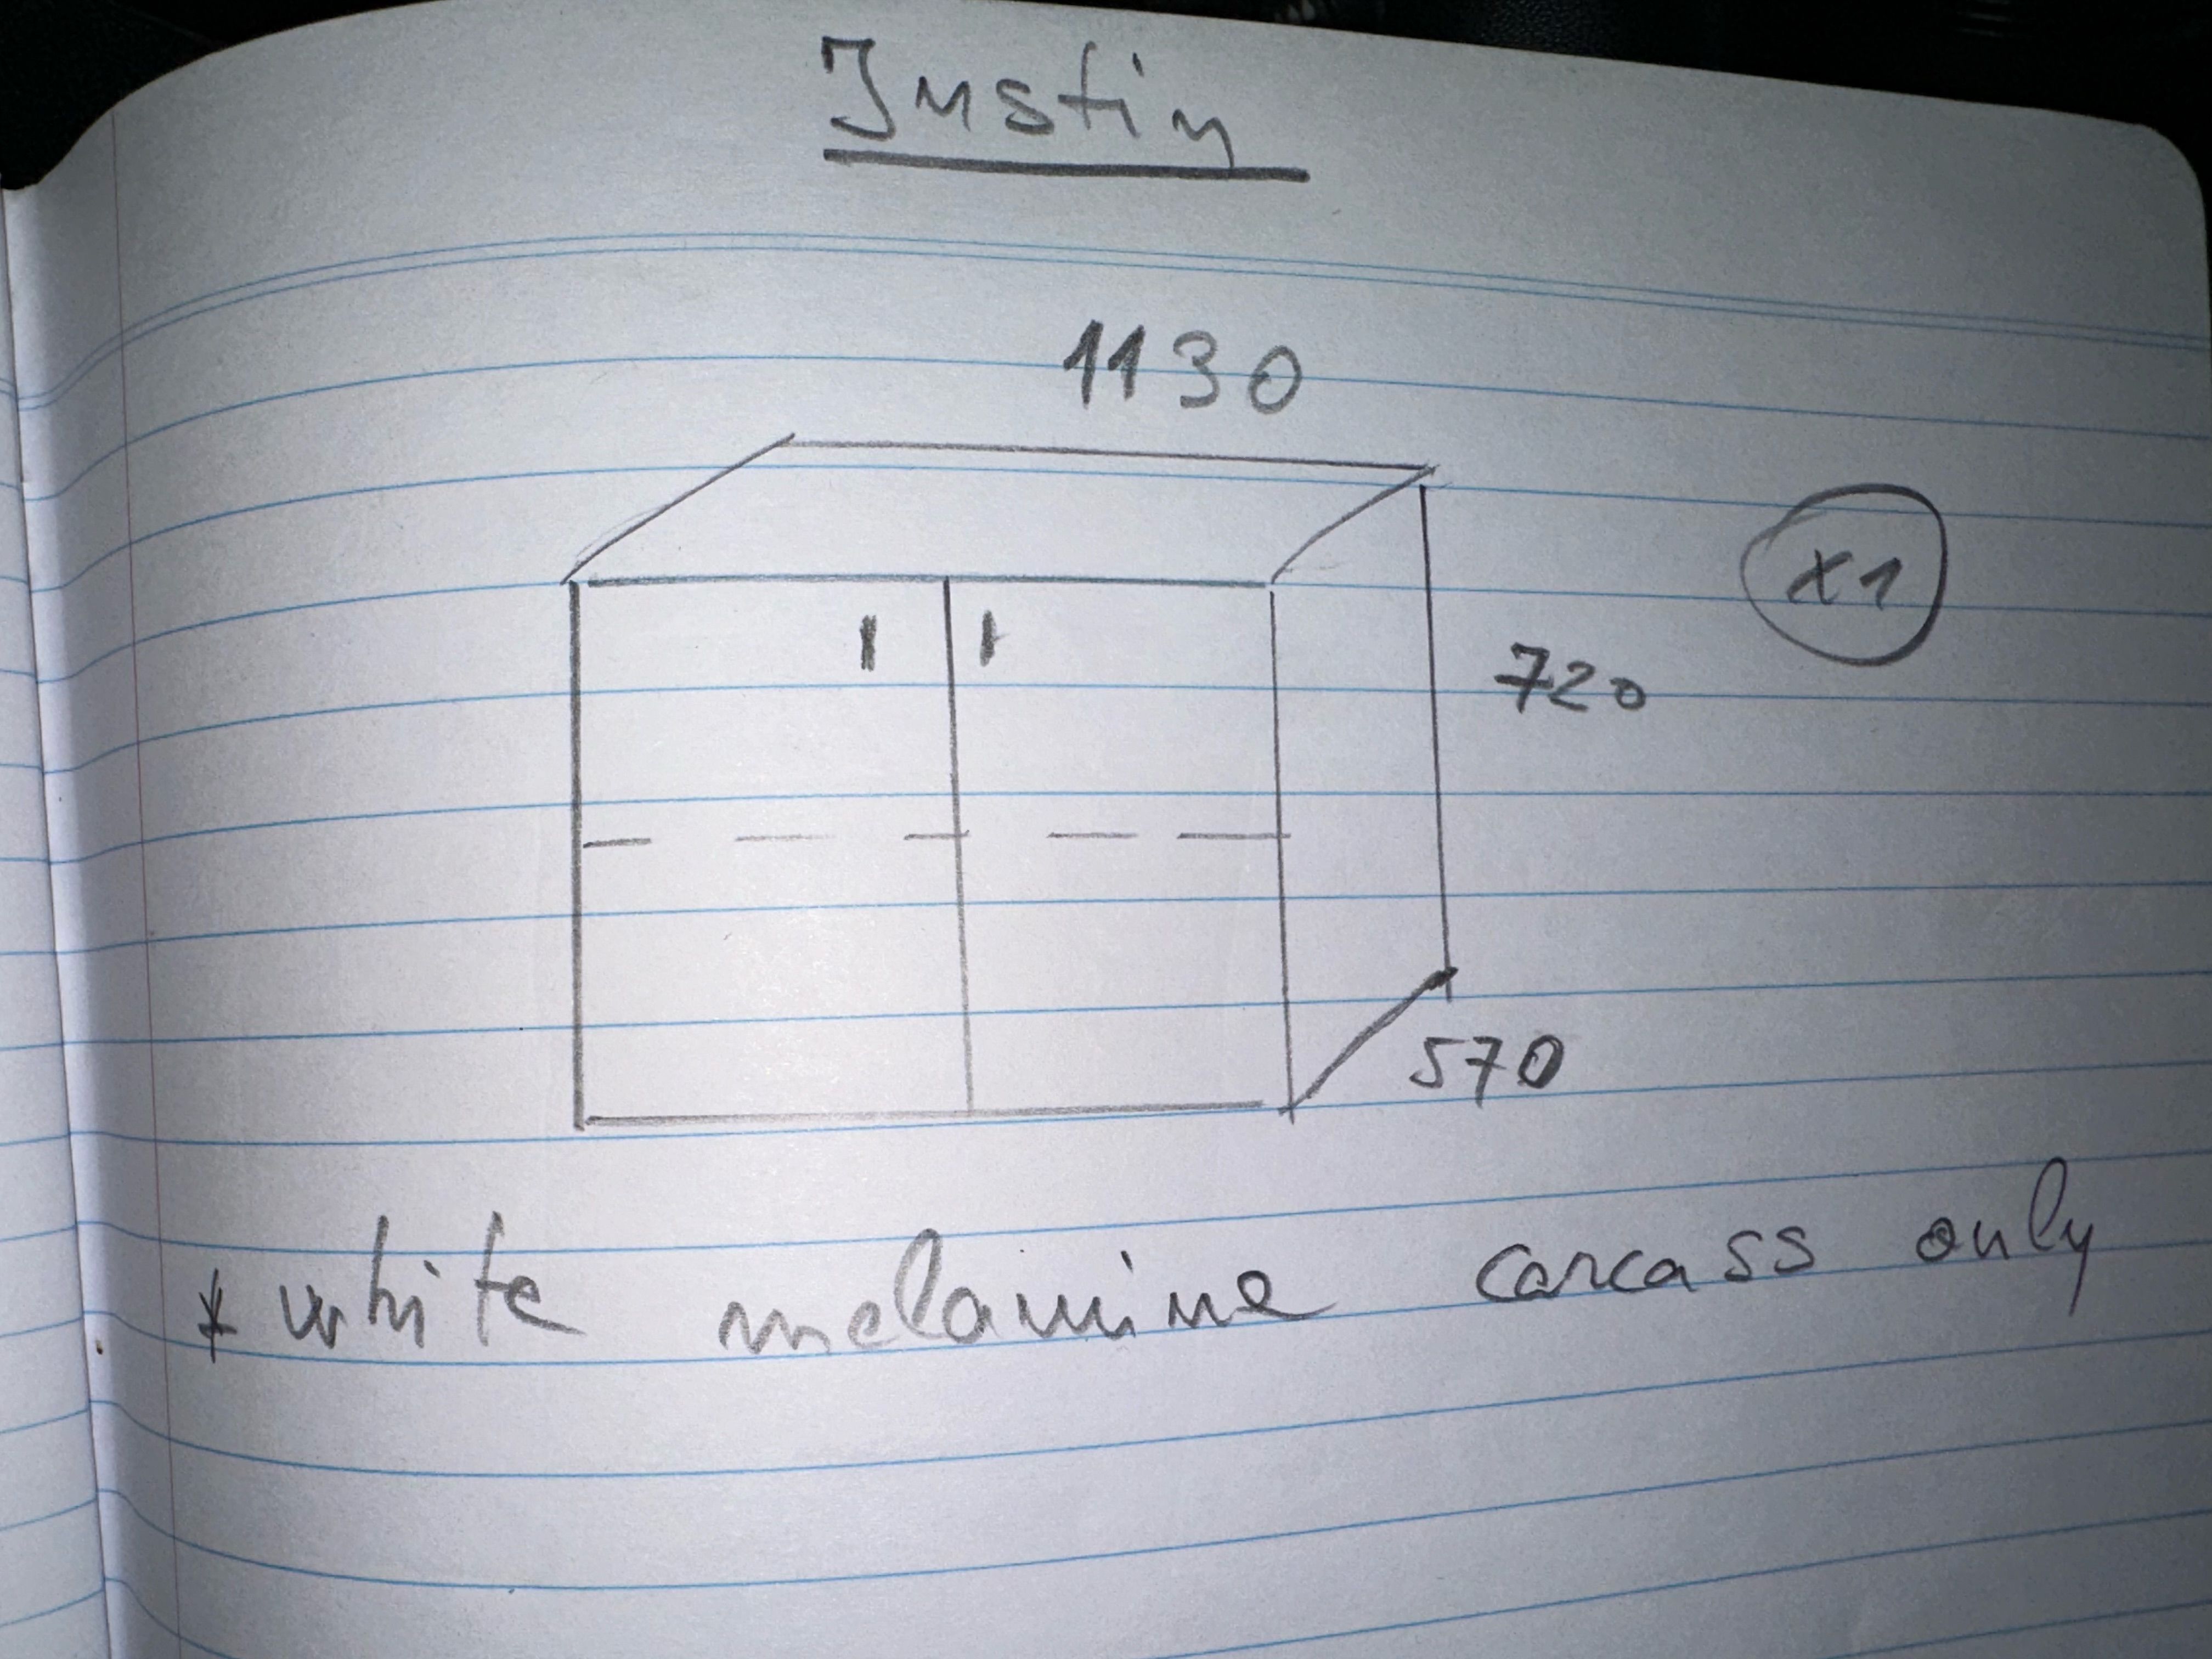 Justin
1130
x1
720
570
* white melamine carcass only